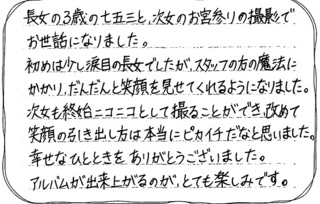 長女の3歳の七五三と、次女のお宮参りの撮影で
お世話になりました。
初めは少し涙目の長女でしたが、スタッフの方の魔法に
かかり、だんだんと笑顔を見せてくれるようになりました。
次女も終始ニコニコとして撮ることができ、改めて
笑顔の引き出し方は本当にピカイチだなと思いました。
幸せなひとときを ありがとうございました。
アルバムが出来上がるのが、とても楽しみです。